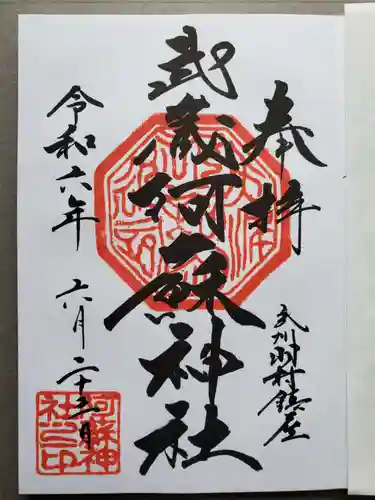 奉拝
武州羽村鎮座
武蔵阿蘇神社
令和六年 六月二十三日
阿蘇神社之印